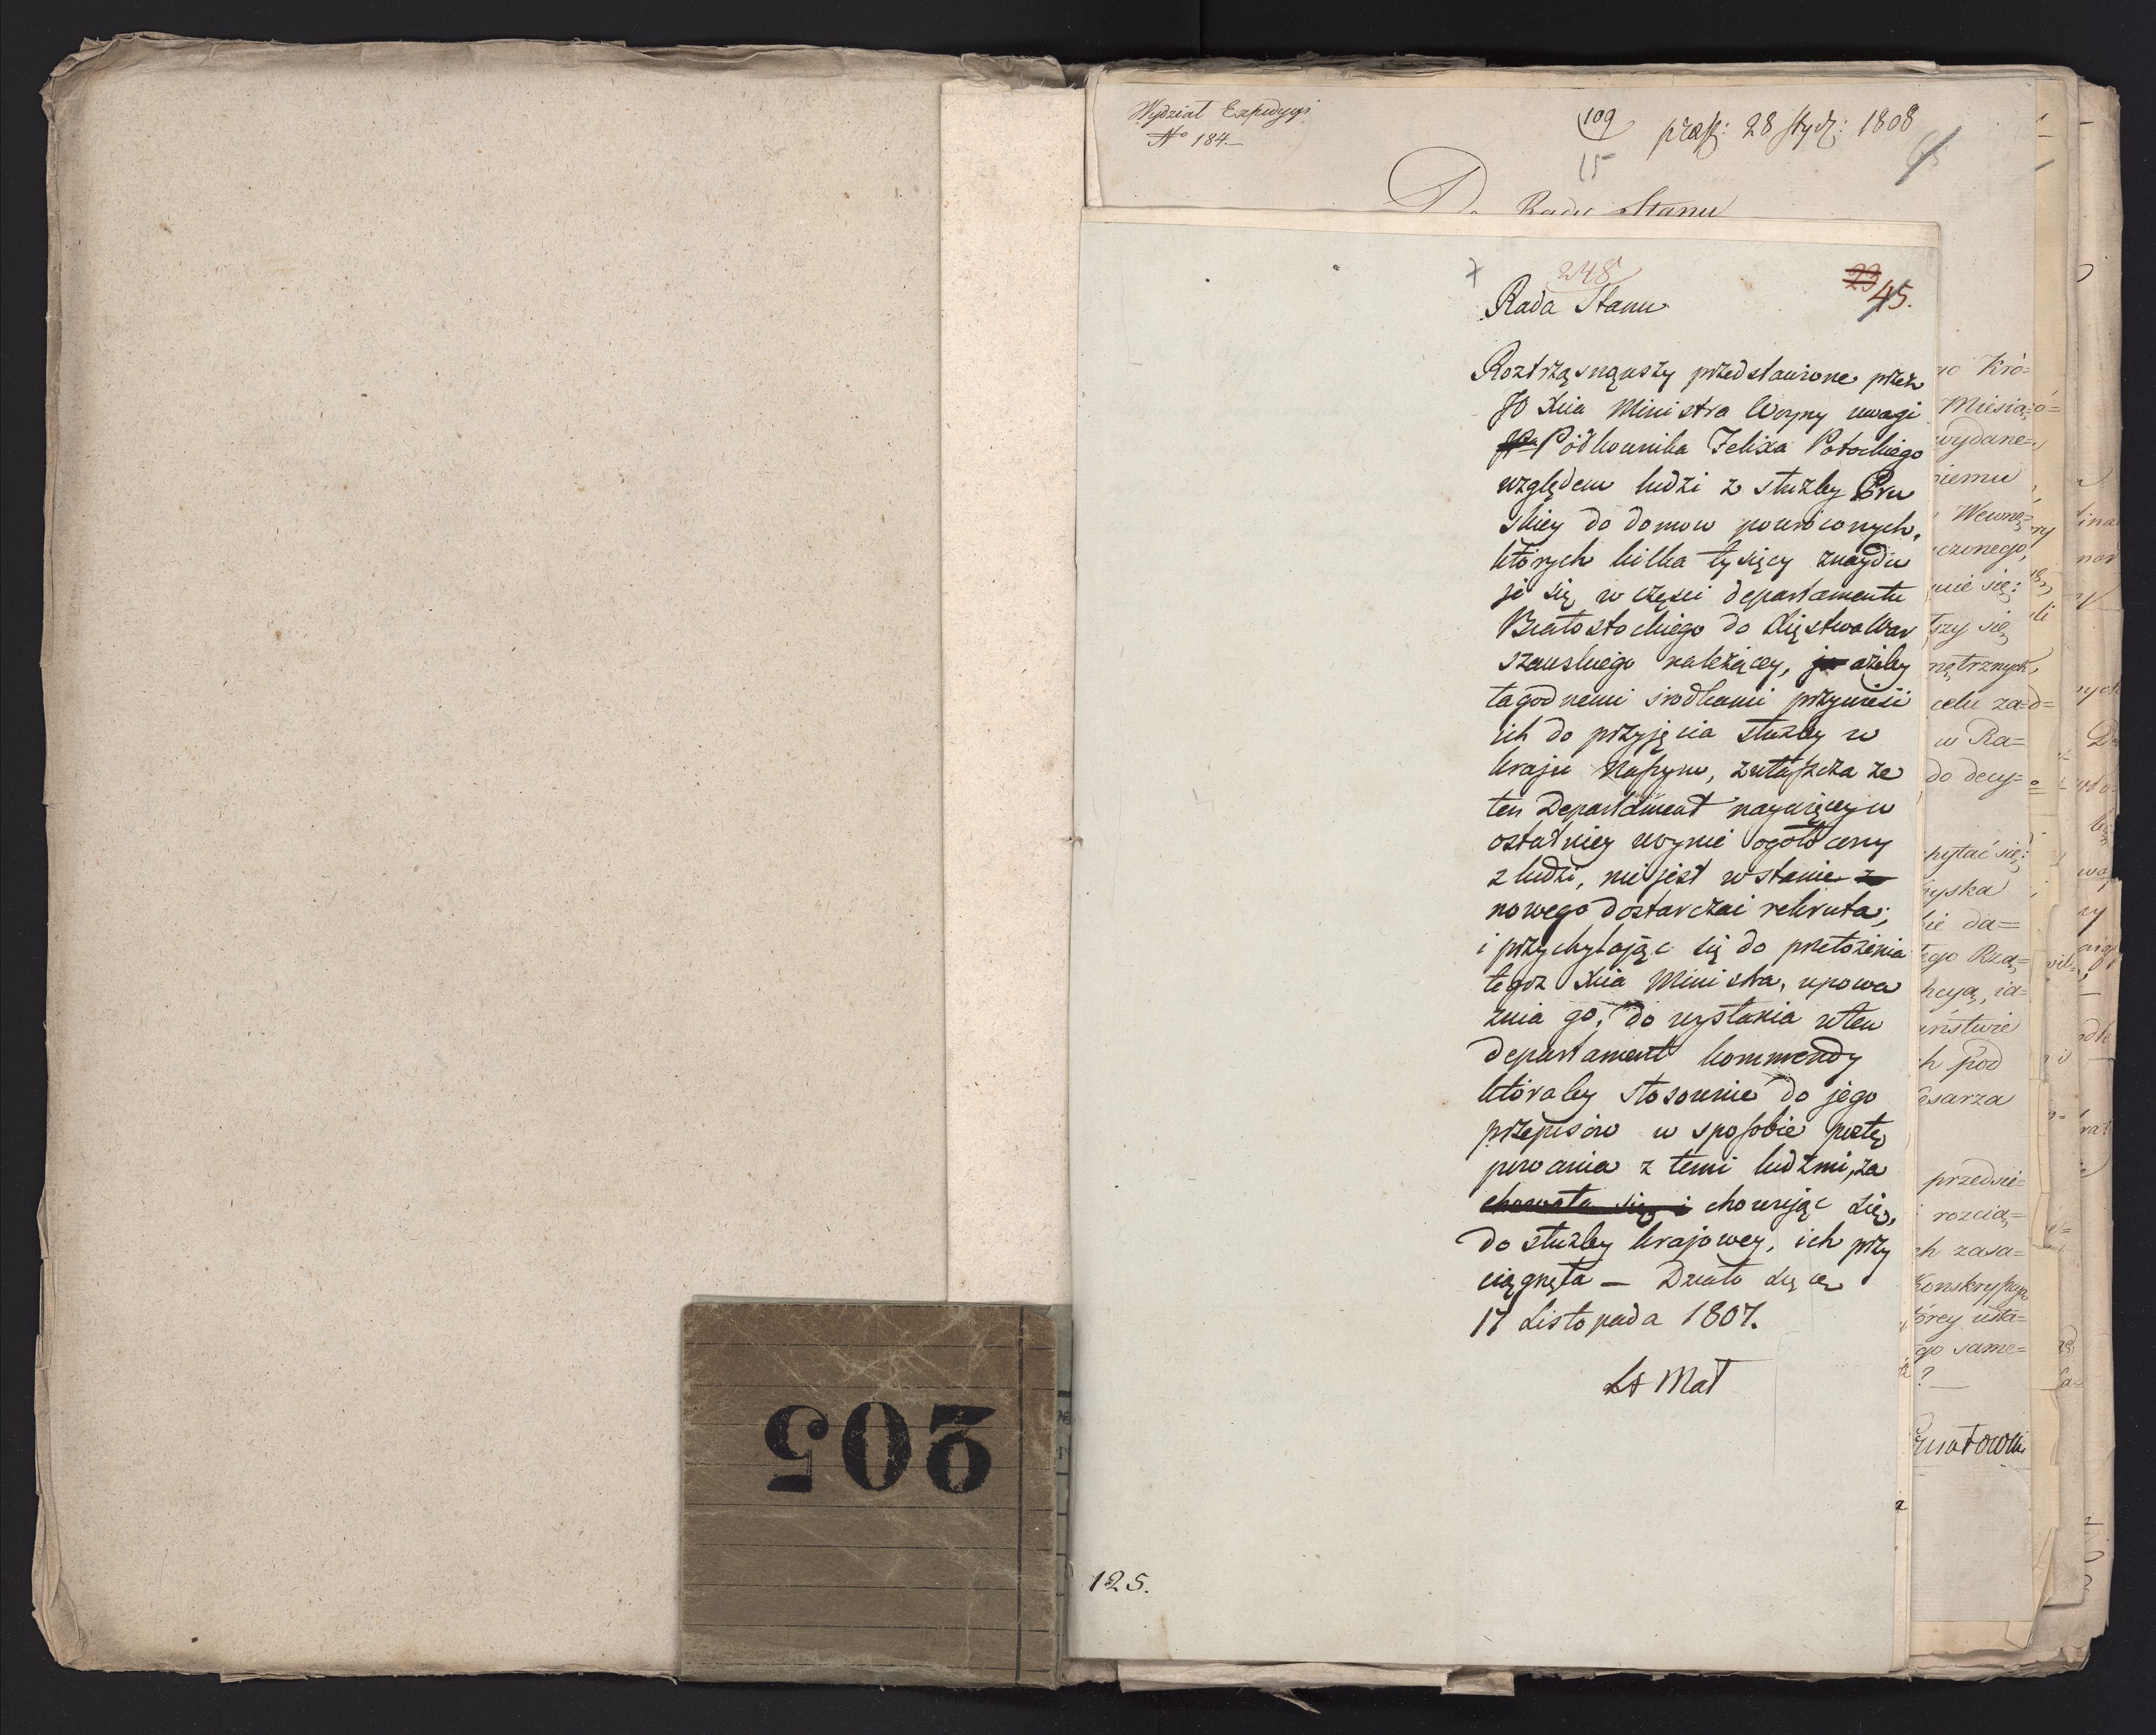 Wydział Expedycyi
No 184.
109
15
praes: 28 stycz: 1808
Do Rady Stanu
248
23
45.
Rada Stanu
Roztrząsnąwszy przedstawione przez
JO Xcia Ministra Woyny uwagi
Półkownika Felixa Potockiego
względem ludzi z służby Pru
skiey do domow powroconych,
których kilka tysięcy znaydu
je się w części departamentu
Białostockiego do Xięstwa War
szawskiego należącey, ażeby
łagodnemi środkami przywieść
ich do przyjęcia służby w
kraju Naszym, zwłaszcza że
ten Departament naywięcey w
ostatniey woynie ogołocony
z ludzi, nie jest w stanie
nowego dostarczać rekruta;
i przychylając się do przełożenia
tegoż Xcia Ministra, upowa
żnia go, do wysłania w ten
departament kommendy
któraby stosownie do jego
przepisów w sposobie postę
powania z temi ludźmi, za
chowała się i chowując się,
do służby krajowey, ich przy
ciągnęła — Działo się
17 Listopada 1807.
St Mał
125.
205
no Kró=
Miesią=
wydane=
niemu
Wewnę=
czonego,
nie się:
szy się
nętrznych,
celu za=
w Ra=
do decy=
pytać się:
zyska
ie da=
tego Rzą=
kcyą, ia=
ństwie
ch pod
Cesarza
przedsię=
rozcią=
ch zasa=
Konskrypcyą
tórey usta=
go same=
?